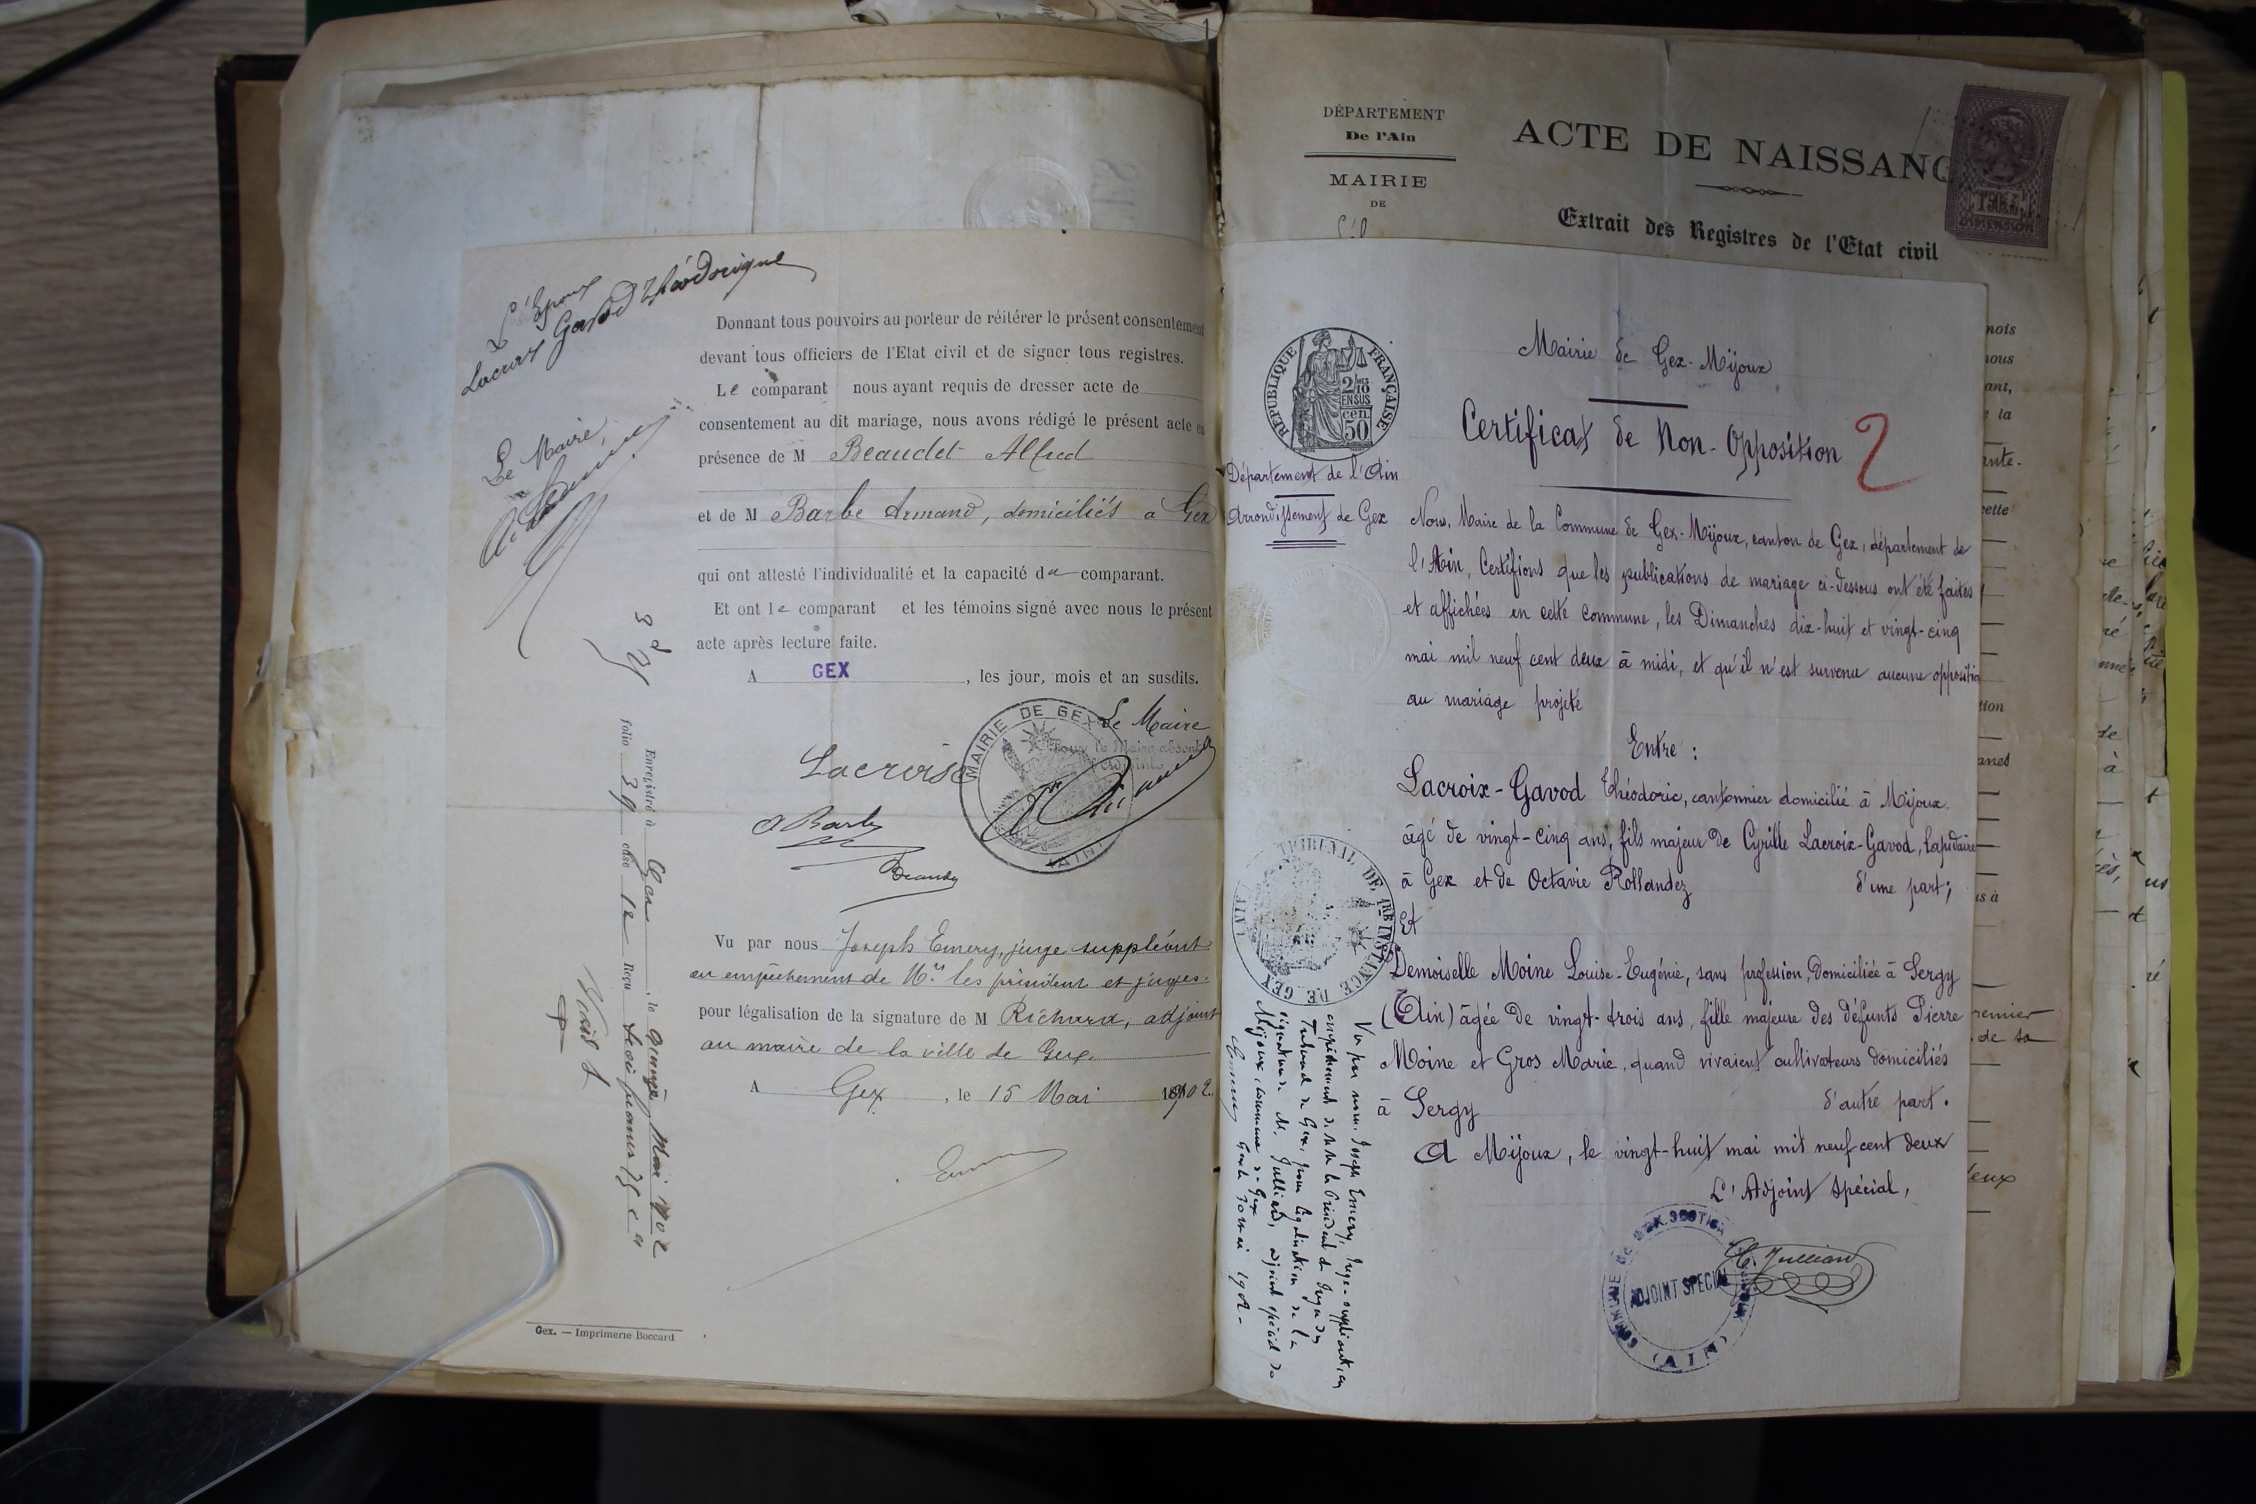 L'Epoux
Lacroix Gavod Théodorique
Le Maire,
Donnant tous pouvoirs au porteur de réitérer le présent consentement
devant tous officiers de l'Etat civil et de signer tous registres.
Le comparant nous ayant requis de dresser acte de
consentement au dit mariage, nous avons rédigé le présent acte en
présence de M Beaudet Alfred
et de M Barbe Armand, domiciliés a Gex
qui ont attesté l'individualité et la capacité du comparant.
Et ont le comparant et les témoins signé avec nous le présent
acte après lecture faite.
A GEX, les jour, mois et an susdits.
Le Maire
Pour le Maire absent
MAIRIE DE GEX
(AIN)
Lacroix
A Barbe
Beaudet
Vu par nous Joseph Emery, juge suppléant
en empêchement de Mrs les président et juges
pour légalisation de la signature de M Richard, adjoint
au maire de la ville de Gex.
A Gex, le 15 Mai 1902
Emery
Enregistré à Gex, le quinze Mai 1902
folio 39 case 12 Reçu trois francs 75 c
Gex. — Imprimerie Boccard
DÉPARTEMENT
De l'Ain
MAIRIE
DE
ACTE DE NAISSANC
Extrait des Registres de l'Etat civil
RÉPUBLIQUE FRANÇAISE
2/10
EN SUS
50 cen.
Mairie de Gex-Mijoux
Certificat de Non-Opposition
2
Département de l'Ain
Arrondissement de Gex
Nous, Maire de la Commune de Gex-Mijoux, canton de Gex, département de
l'Ain, Certifions que les publications de mariage ci-dessous ont été faites
et affichées en cette commune, les Dimanches dix-huit et vingt-cinq
mai mil neuf cent deux à midi, et qu'il n'est survenu aucune opposition
au mariage projeté
Entre :
Lacroix-Gavod Théodoric, cantonnier domicilié à Mijoux.
âgé de vingt-cinq ans, fils majeur de Cyrille Lacroix-Gavod, lapidaire
à Gex et de Octavie Rollandez d'une part;
Et
Demoiselle Moine Louise-Eugénie, sans profession, domiciliée à Sergy
(Ain) âgée de vingt-trois ans, fille majeure des défunts Pierre
Moine et Gros Marie, quand vivaient cultivateurs domiciliés
à Sergy d'autre part.
A Mijoux, le vingt-huit mai mil neuf cent deux
L'Adjoint Spécial,
Julliard
COMMUNE DE GEX. SECTION
ADJOINT SPECIAL
(AIN)
TRIBUNAL DE 1RE INSTANCE DE GEX
(AIN)
Vu par nous, Joseph Emery, Juge-suppléant, en
empêchement de MM le Président et Juges du
Tribunal de Gex, pour légalisation de la
signature de M. Julliard, adjoint spécial de
Mijoux commune de Gex